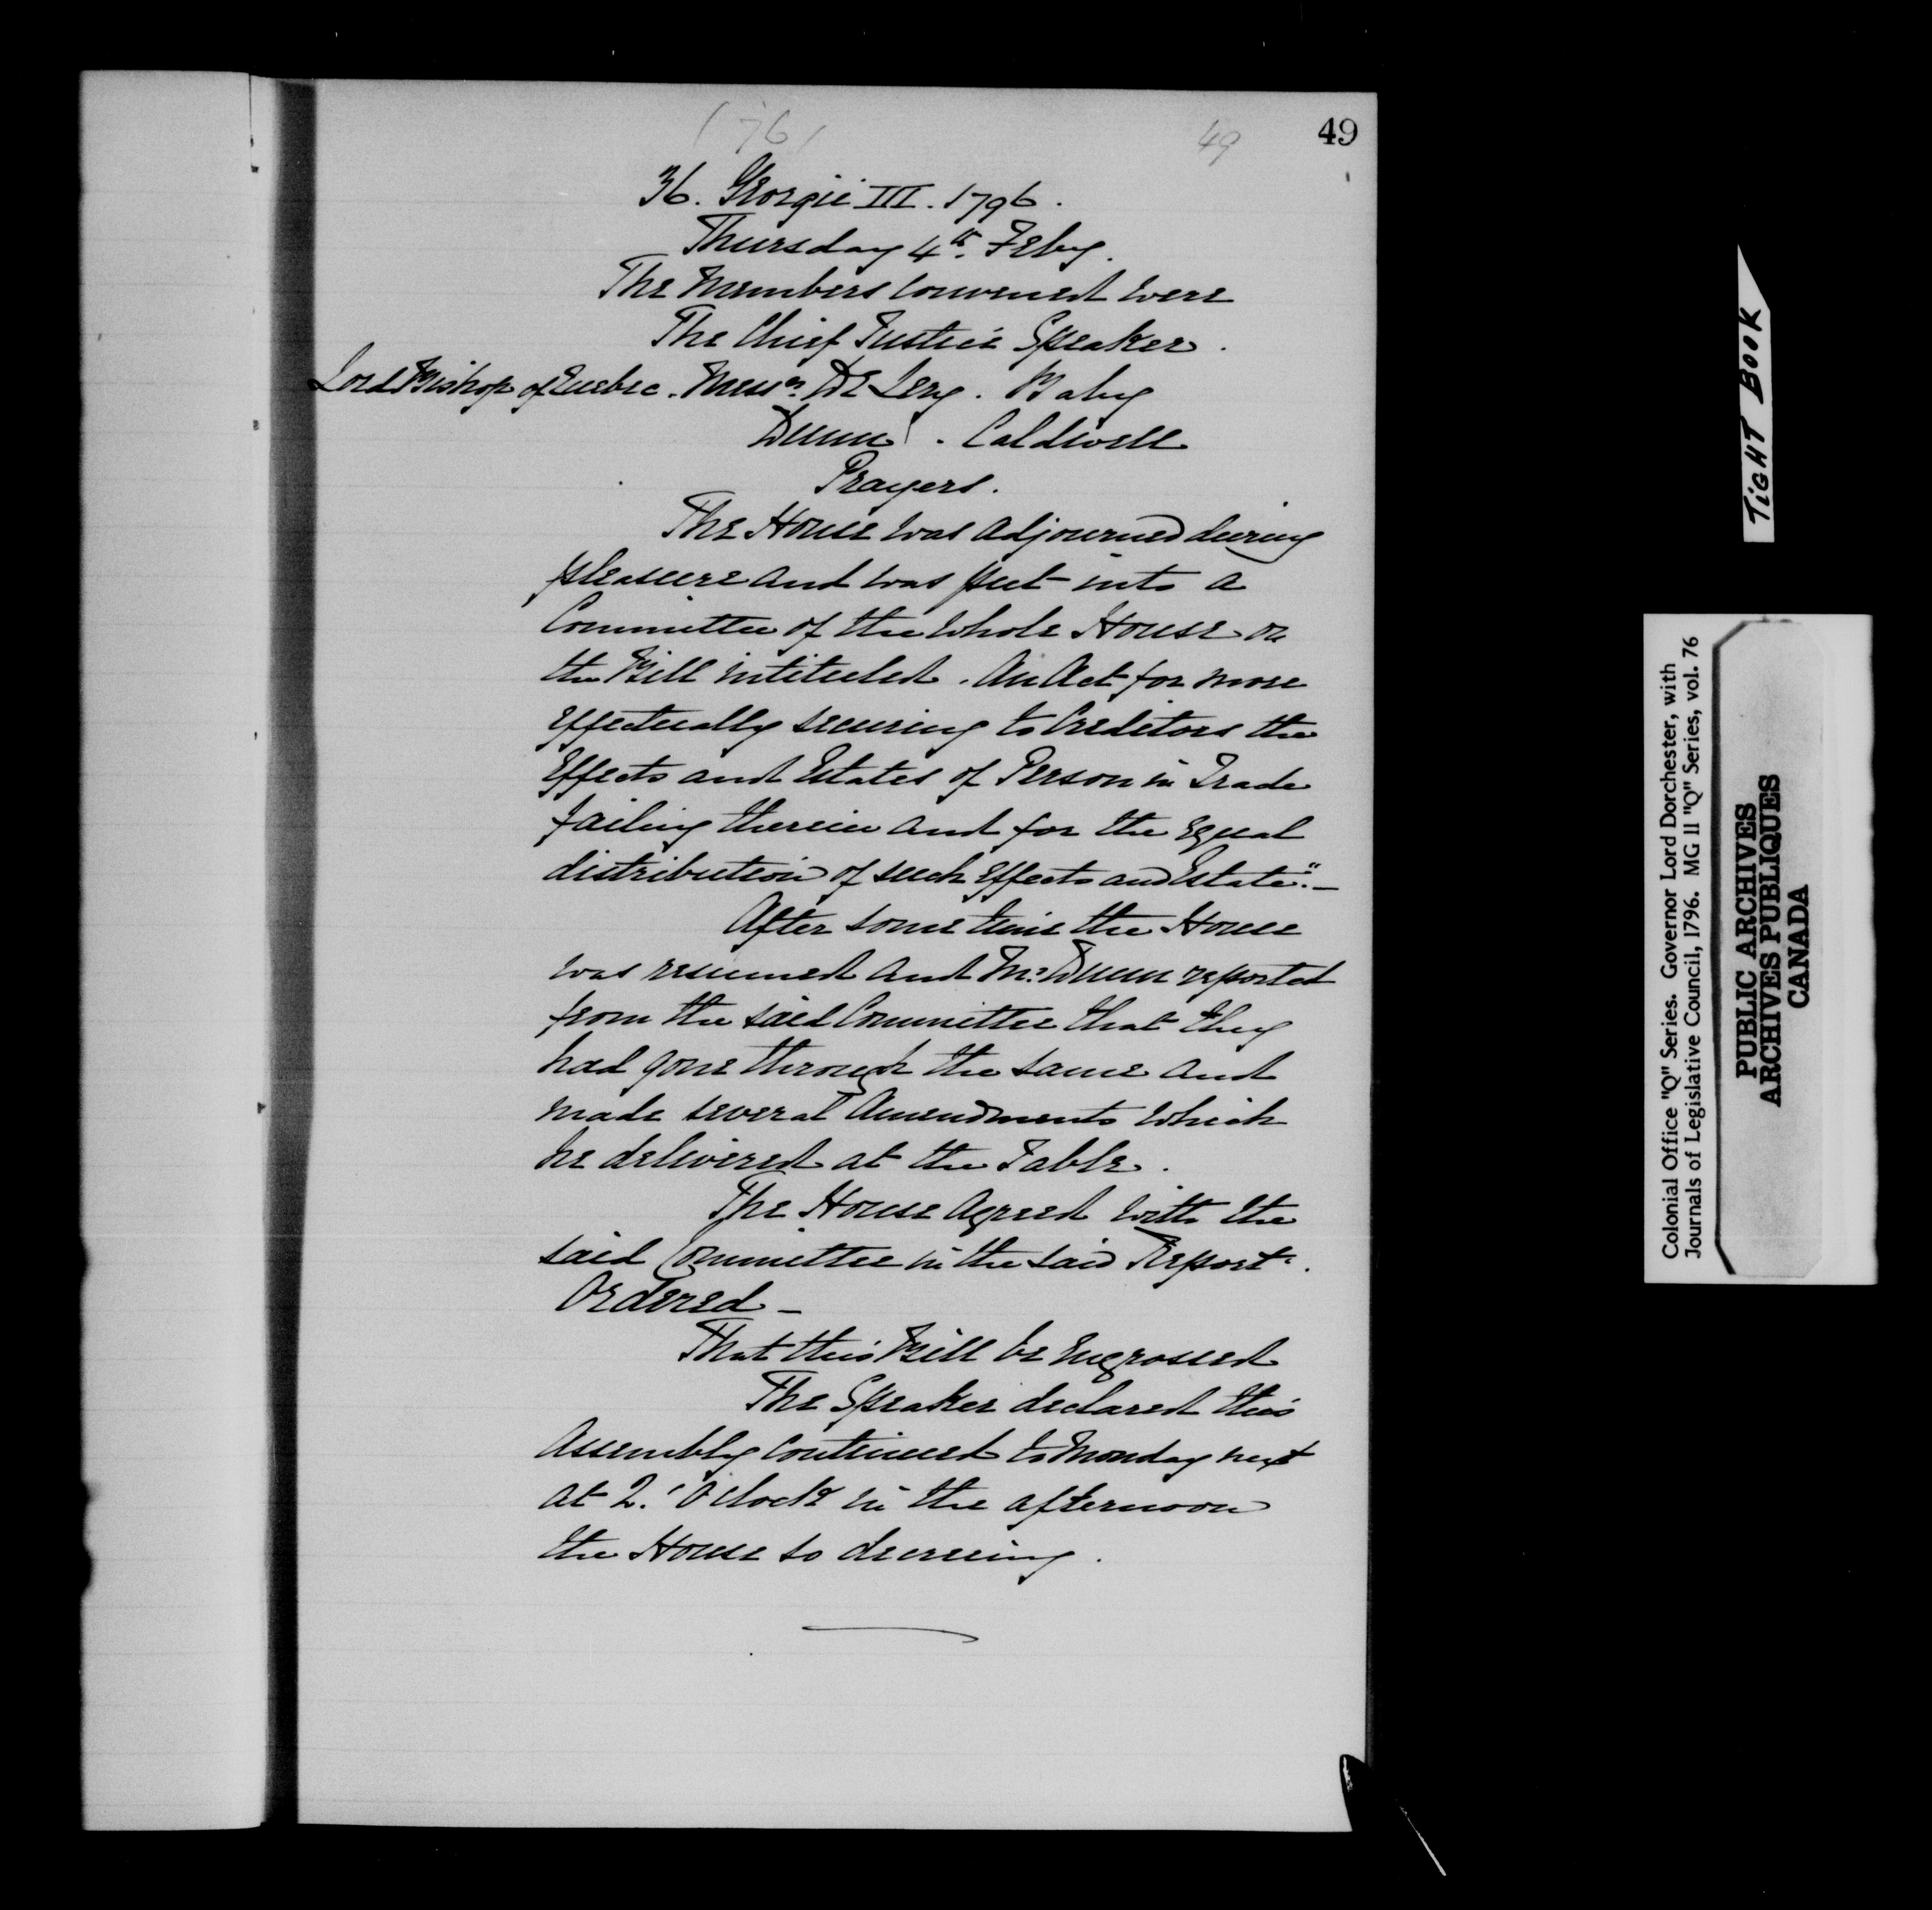 (76)
49
49
36. Georgii III. 1796.
Thursday 4th. Feby.
The Members convened were
The Chief Justice Speaker.
Lord Bishop of Quebec. Messrs. De Lery. Baby
Dunn. Caldwell
Prayers.
The House was adjourned during
pleasure and was put into a
Committee of the whole House on
the Bill intituled. An Act for more
effectually securing to Creditors the
Effects and Estates of Person in Trade
failing therein and for the equal
distribution of such Effects and Estate."-
After some time the House
was resumed and Mr. Dunn reported
from the said Committee that they
had gone through the same and
made several Amendments which
he delivered at the Table.
The House agreed with the
said Committee in the said Report.
Ordered -
That this Bill be Engrossed
The Speaker declared this
Assembly continued to Monday next
at 2. O'Clock in the afternoon
the House so decreeing.
TIGHT BOOK
Colonial Office "Q" Series. Governor Lord Dorchester, with
Journals of Legislative Council, 1796. MG 11 "Q" Series, vol. 76
PUBLIC ARCHIVES
ARCHIVES PUBLIQUES
CANADA